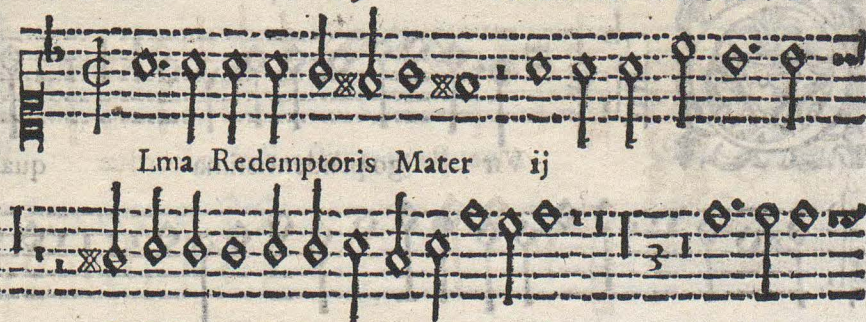 Lma Redemptoris Mater ij
3